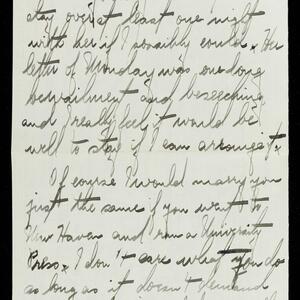 stay over at least one night
with her if I possibly could. Her
letter of Monday was one long
bewailment and beseeching
and I really feel it would be
well to stay if I can arrange it.
Of course I would marry you
just the same if you went to
New Haven and ran a University
Press. I don't care what you do
as long as it doesn't demand